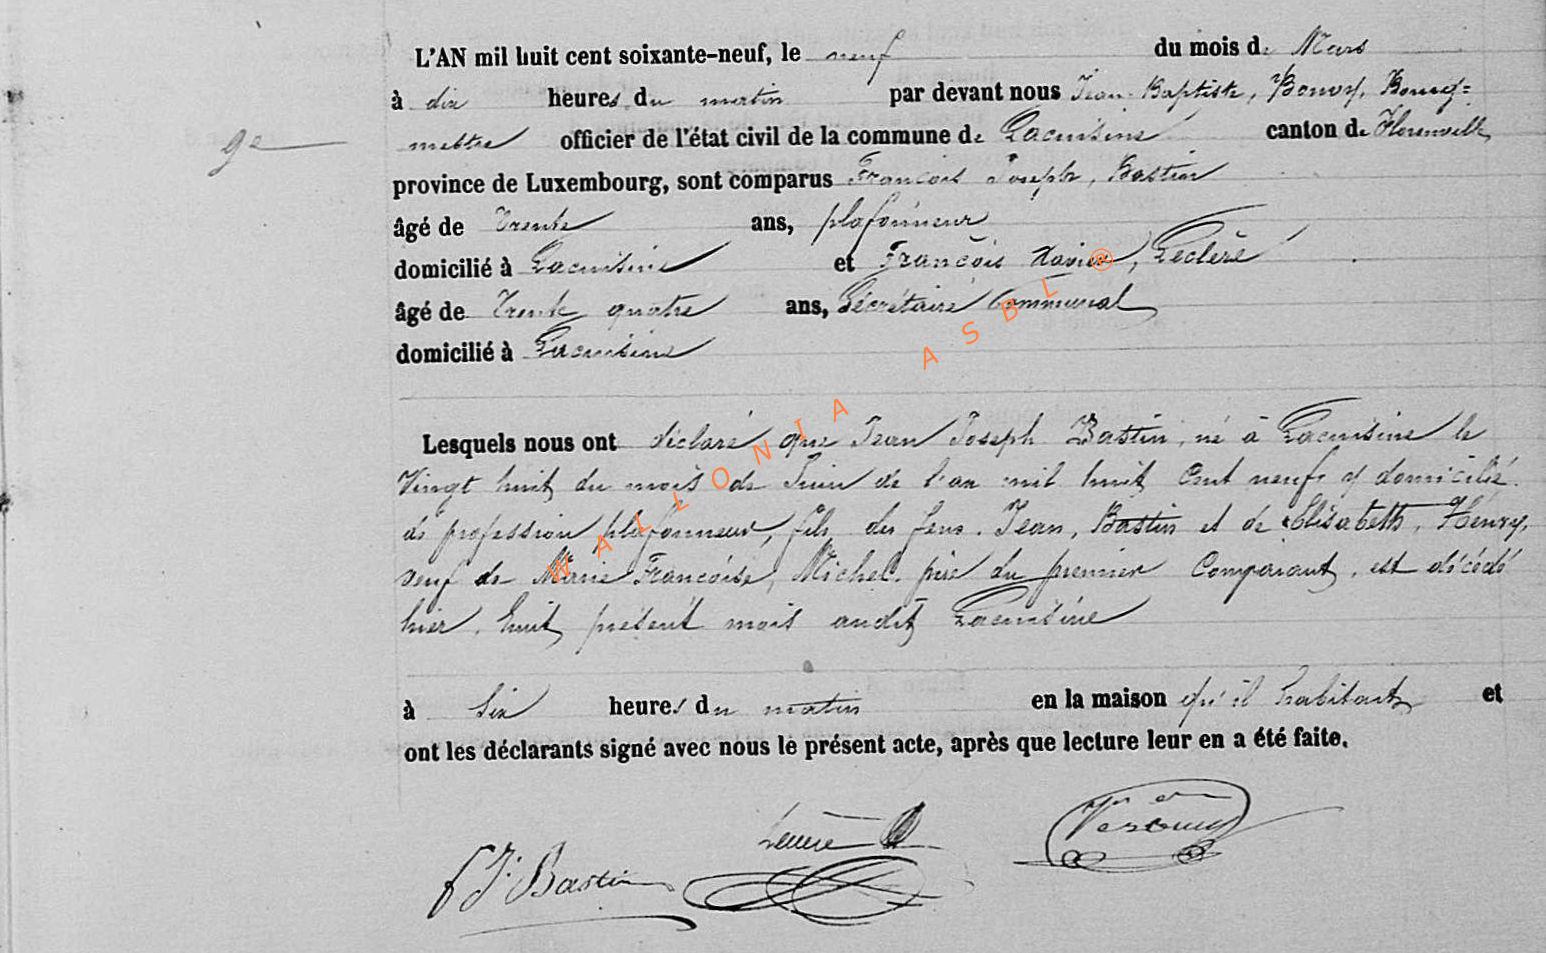 L'AN mil huit cent soixante-neuf, le neuf du mois de Mars
à dix heures du matin par devant nous Jean Baptiste, Bourg=
9e mestre officier de l'état civil de la commune de Lacuisine canton de Florenville
province de Luxembourg, sont comparus François Joseph, Bastin
âgé de Trente ans, plafonneur
domicilié à Lacuisine et François Xavier, Leclère
âgé de Trente quatre ans, Sécrétaire Communal
domicilié à Lacuisine
Lesquels nous ont déclaré que Jean Joseph Bastin, né à Lacuisine le
Vingt huit du mois de Juin de l'an mil huit Cent neuf y domicilié.
de profession plafonneur, fils des feus. Jean, Bastin et de Elisabeth, Henry,
veuf de Marie Françoise, Michel. père du premier Comparant, est décédé
hier, huit présent mois audit Lacuisine
à Six heures du matin en la maison qu'il habitait et
ont les déclarants signé avec nous le présent acte, après que lecture leur en a été faite.
f J. Bastin
WALLONIA ASBL ®